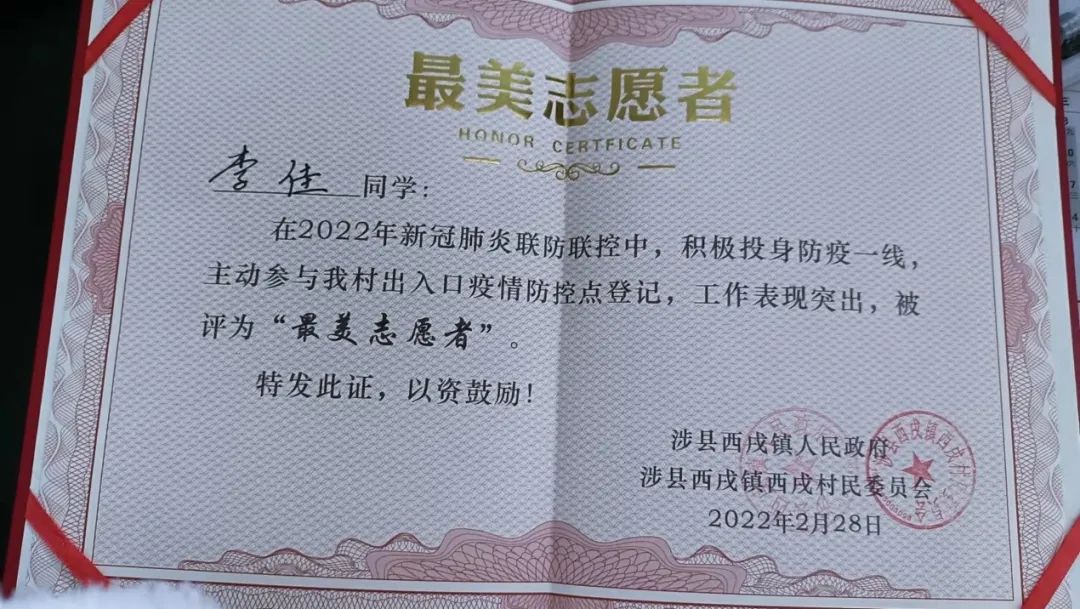 最美志愿者
HONOR CERTFICATE
李佳 同学：
在2022年新冠肺炎联防联控中，积极投身防疫一线，
主动参与我村出入口疫情防控点登记，工作表现突出，被
评为“最美志愿者”。
特发此证，以资鼓励！
涉县西戌镇人民政府
涉县西戌镇西戌村民委员会
2022年2月28日
涉县西戌镇西戌村